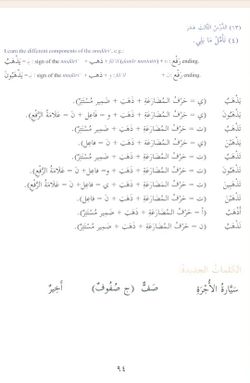 (١٣) الدَّرْسُ الثَّالِثَ عَشَرَ
(٤) تَأَمَّلْ مَا يَلِي.
Learn the different components of the muḍāriʿ, e.g.:
يَذْهَبُ = يـ : sign of the muḍāriʿ + ذهب + fāʿil (ḍamīr mustatir) + ُ : رَفْع ending.
يَذْهَبُونَ = يـ : sign of the muḍāriʿ + ذهب + و : fāʿil + ن : رَفْع ending.
يَذْهَبُ (ي = حَرْفُ المُضَارَعَةِ + ذَهَبَ + ضَمِير مُسْتَتِرٌ).
يَذْهَبُونَ (ي = حَرْفُ المُضَارَعَةِ + ذَهَبَ + و = فاعِل + نَ = عَلَامَةُ الرَّفْعِ).
تَذْهَبُ (ت = حَرْفُ المُضَارَعَةِ + ذَهَبَ + ضَمِير مُسْتَتِرٌ).
يَذْهَبْنَ (ي = حَرْفُ المُضَارَعَةِ + ذَهَبَ + نَ = فاعِل).
تَذْهَبُ (ت = حَرْفُ المُضَارَعَةِ + ذَهَبَ + ضَمِير مُسْتَتِرٌ).
تَذْهَبُونَ (ت = حَرْفُ المُضَارَعَةِ + ذَهَبَ + و= فاعِل + نَ = عَلَامَةُ الرَّفْعِ).
تَذْهَبِينَ (ت = حَرْفُ المُضَارَعَةِ + ذَهَبَ + ي = فاعِل+ نَ = عَلَامَةُ الرَّفْعِ).
تَذْهَبْنَ (ت = حَرْفُ المُضَارَعَةِ + ذَهَبَ + نَ = فاعِل).
أَذْهَبُ (أ = حَرْفُ المُضَارَعَةِ + ذَهَبَ + ضَمِير مُسْتَتِرٌ).
نَذْهَبُ (ن = حَرْفُ المُضَارَعَةِ + ذَهَبَ + ضَمِير مُسْتَتِرٌ).
الكَلِمَاتُ الجَدِيدَةُ
سَيَّارَةُ الأُجْرَةِ صَفٌّ (ج صُفُوفٌ) أَخِيرٌ
٩٤